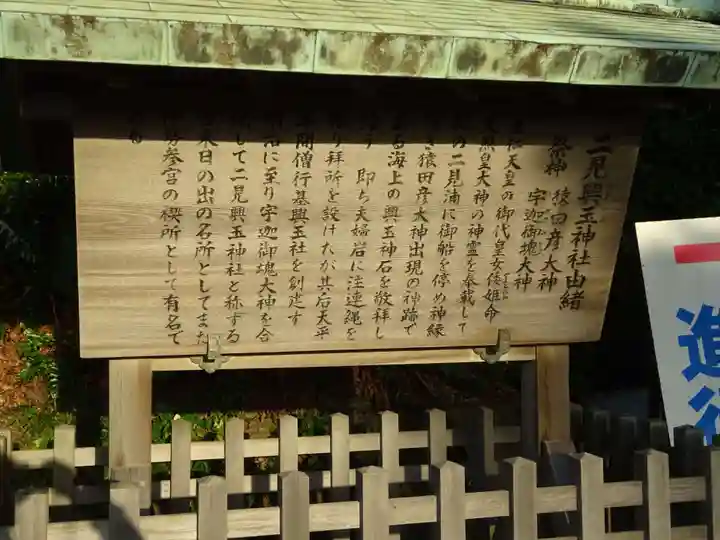 二見興玉神社由緒
祭神 猿田彦大神
宇迦御魂大神
仁天皇の御代皇女倭姫命
照皇大神の神霊を奉載して
の二見浦に御船を停め神縁
き猿田彦大神出現の神跡で
る海上の興玉神石を敬拝し
即ち夫婦岩に注連縄を
り拝所を設けたが其后天平
間僧行基興玉社を創建す
治に至り宇迦御魂大神を合
して二見興玉神社と称する
来日の出の名所としてまた
参宮の禊所として有名で
進